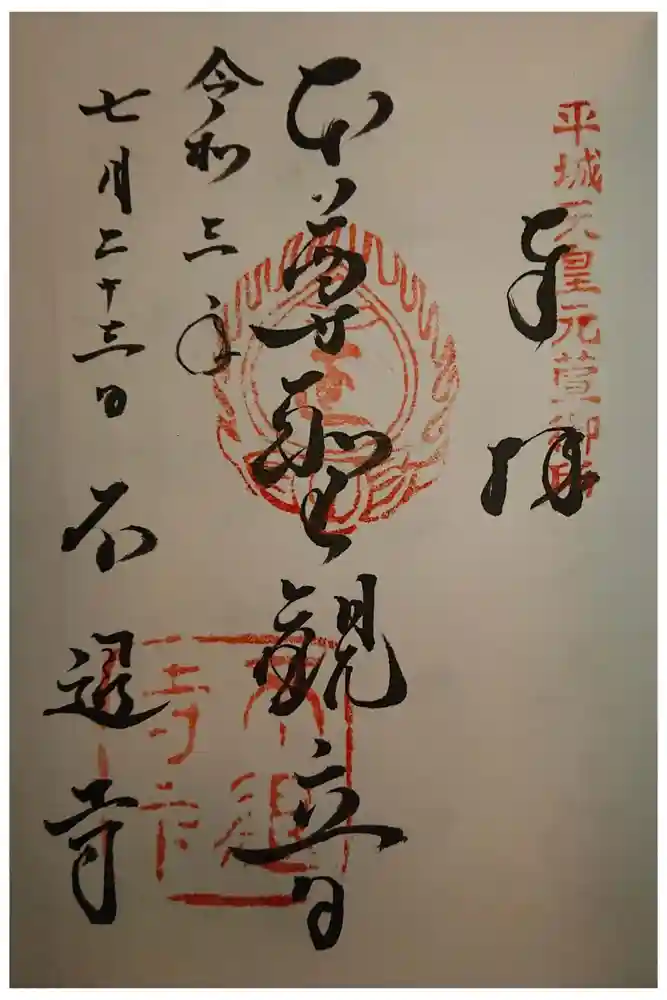 平城天皇元萱御所
奉拝
本尊聖観音
令和三年
七月二十三日 不退寺
不退寺印